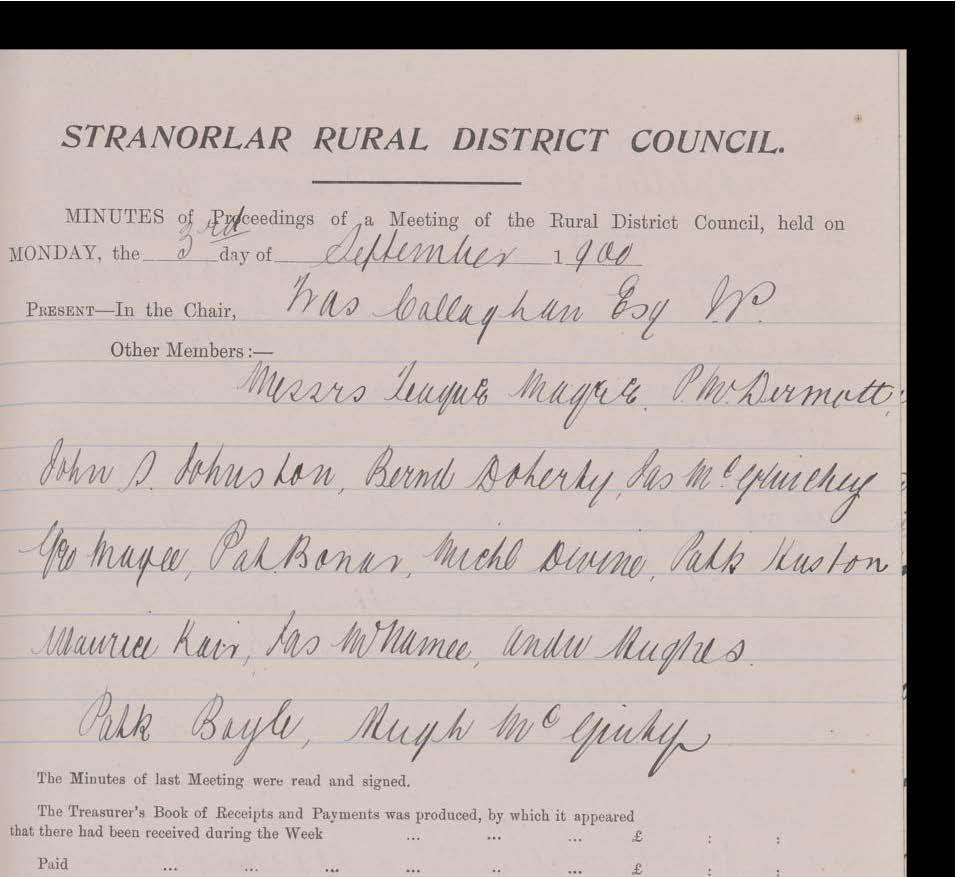 STRANORLAR RURAL DISTRICT COUNCIL.
MINUTES of Proceedings of a Meeting of the Rural District Council, held on
MONDAY, the 3rd day of September 1900
PRESENT—In the Chair, Callaghan Esq JP.
Other Members:—
Messrs Teague Magee. P. McDermott,
John S. Johnston, Bernd Doherty, Jas McGlinchey
Geo Magee, Pat. Bonar, Michl Devine, Patk Huston
Maurice Kair, Jas McNamee, Andw Hughes.
Patk Boyle, Hugh McGinty
The Minutes of last Meeting were read and signed.
The Treasurer's Book of Receipts and Payments was produced, by which it appeared
that there had been received during the Week ... ... ... £ : :
Paid ... ... ... ... .. ... £ : :